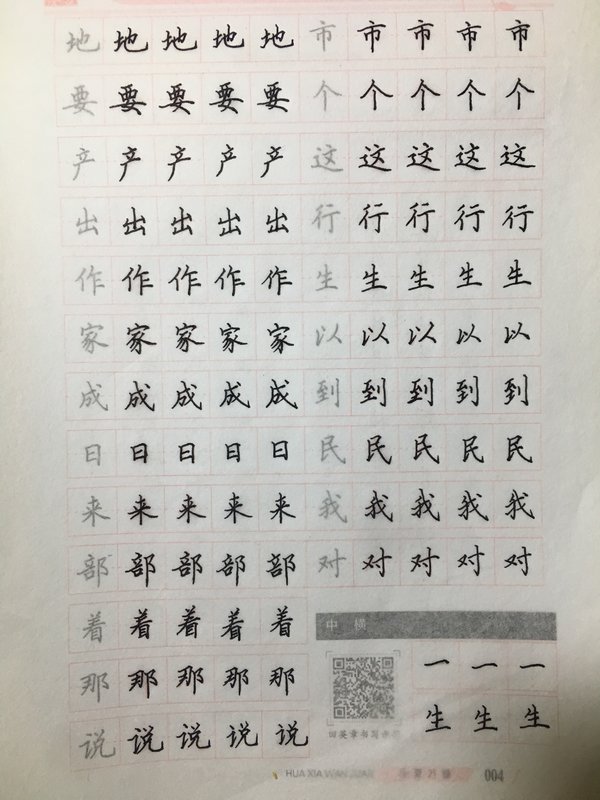 地地地地地市市市市市
要要要要要个个个个个
产产产产产这这这这这
出出出出出行行行行行
作作作作作生生生生生
家家家家家以以以以以
成成成成成到到到到到
日日日日日民民民民民
来来来来来我我我我我
部部部部部对对对对对
着着着着着
那那那那那
说说说说说
中横
一一一
生生生
田英章书写
HUA XIA WAN JUAN
004